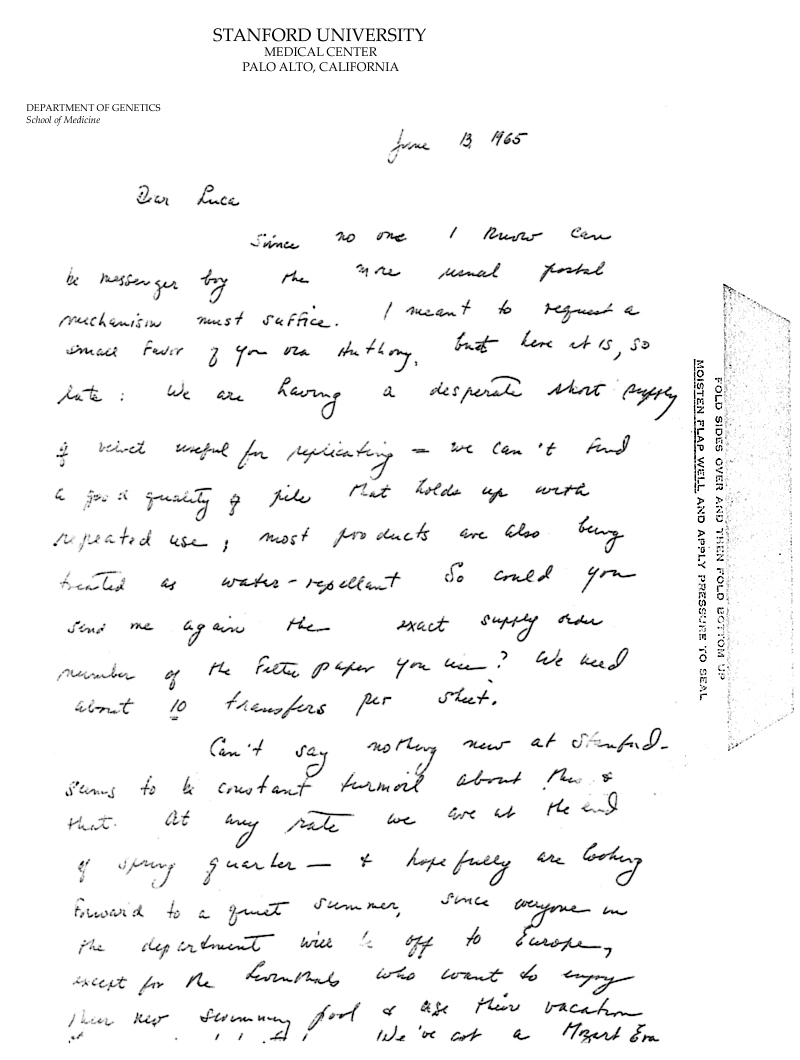 STANFORD UNIVERSITY
MEDICAL CENTER
PALO ALTO, CALIFORNIA
DEPARTMENT OF GENETICS
School of Medicine
June 13, 1965
Dear Luca
Since no one I know can
be messenger boy the more usual postal
mechanism must suffice. I meant to request a
small favor of you via Anthony, but here it is, so
late: We are having a desperate short supply
of velvet useful for replicating = we can't find
a good quality of pile that holds up with
repeated use; most products are also being
treated as water-repellant So could you
send me again the exact supply order
number of the filter paper you use? We need
about 10 transfers per sheet.
Can't say nothing new at Stanford -
seems to be constant turmoil about this &
that. At any rate we are at the end
of spring quarter — & hopefully are looking
forward to a quiet summer, since everyone in
the department will be off to Europe,
except for the Levinthals who want to enjoy
their new swimming pool & use their vacation
We've got a Mozart Era
FOLD SIDES OVER AND THEN FOLD BOTTOM UP
MOISTEN FLAP WELL AND APPLY PRESSURE TO SEAL